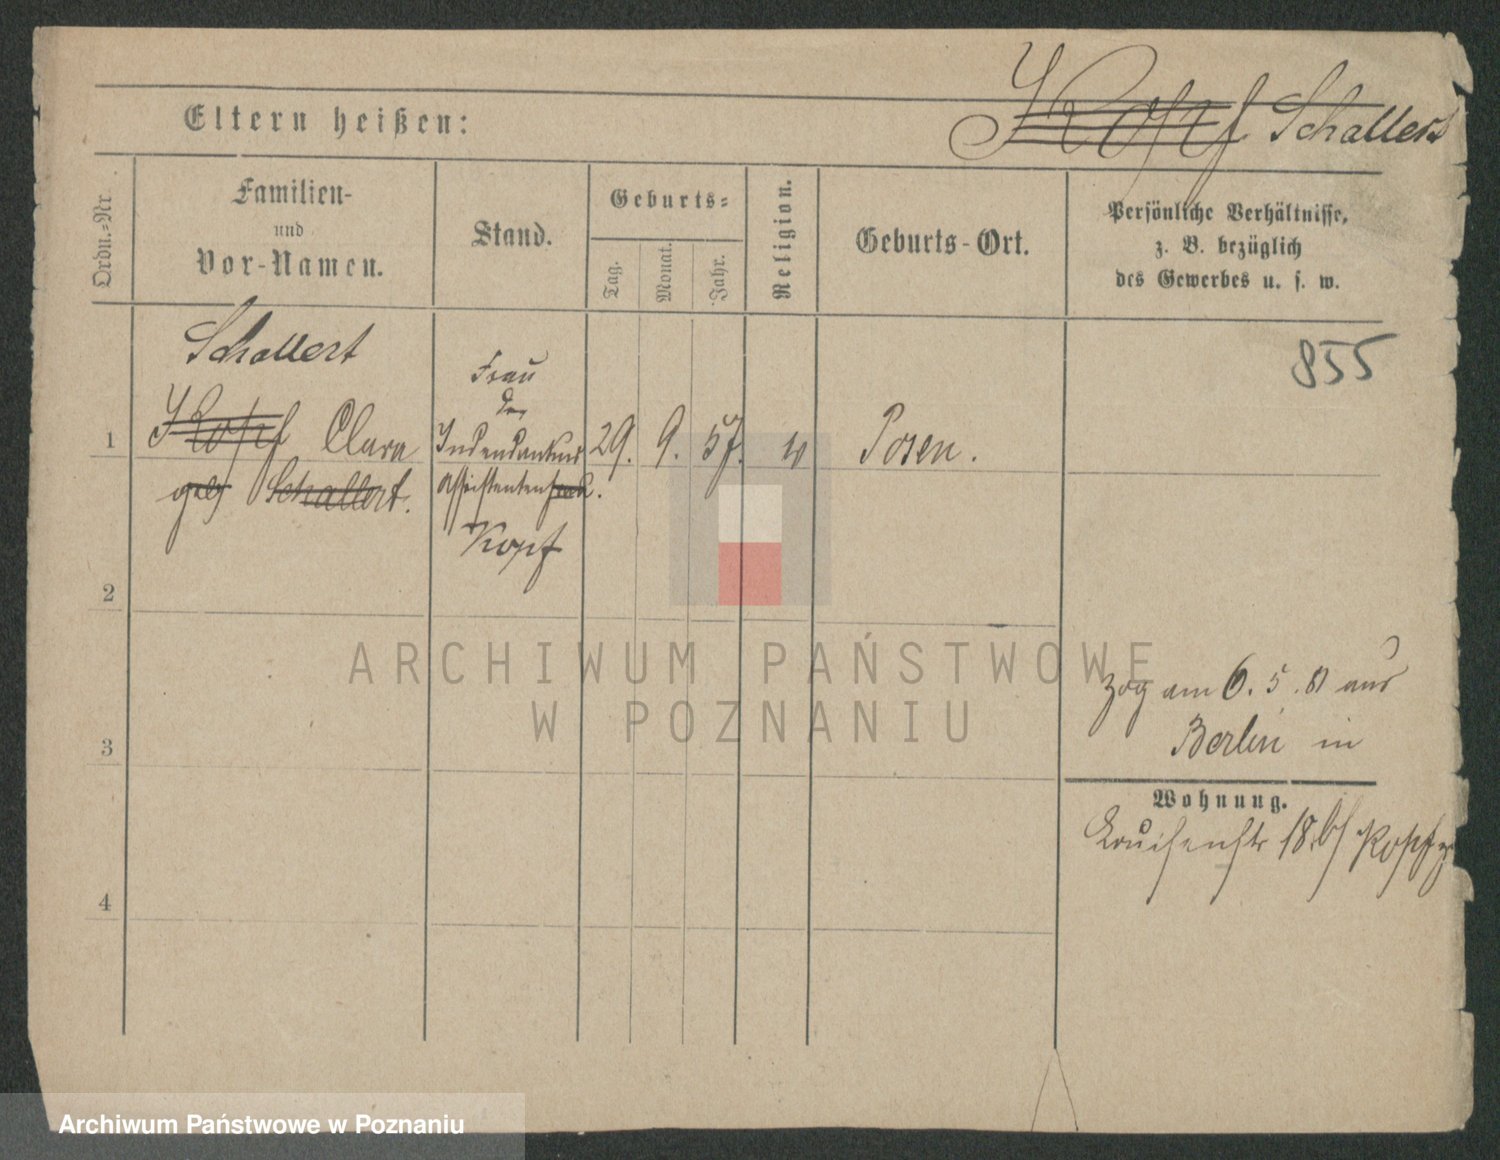 Kopf Schallert
Eltern heißen:
Ordn.-Nr
Familien-
und
Vor-Namen.
Stand.
Geburts-
Tag.
Monat.
Jahr.
Religion.
Geburts-Ort.
Persönliche Verhältnisse,
z. B. bezüglich
des Gewerbes u. s. w.
855
Schallert
Frau
des
1 Kopf Clara 29. 9. 57. Posen.
geb Schallert.
assistenten
Kopf
2
ARCHIWUM PAŃSTWOWE
W POZNANIU
zog am 6. 5. 81 aus
Berlin in
3
Wohnung.
Louisenstr 18. b/ Kopf
4
Archiwum Państwowe w Poznaniu